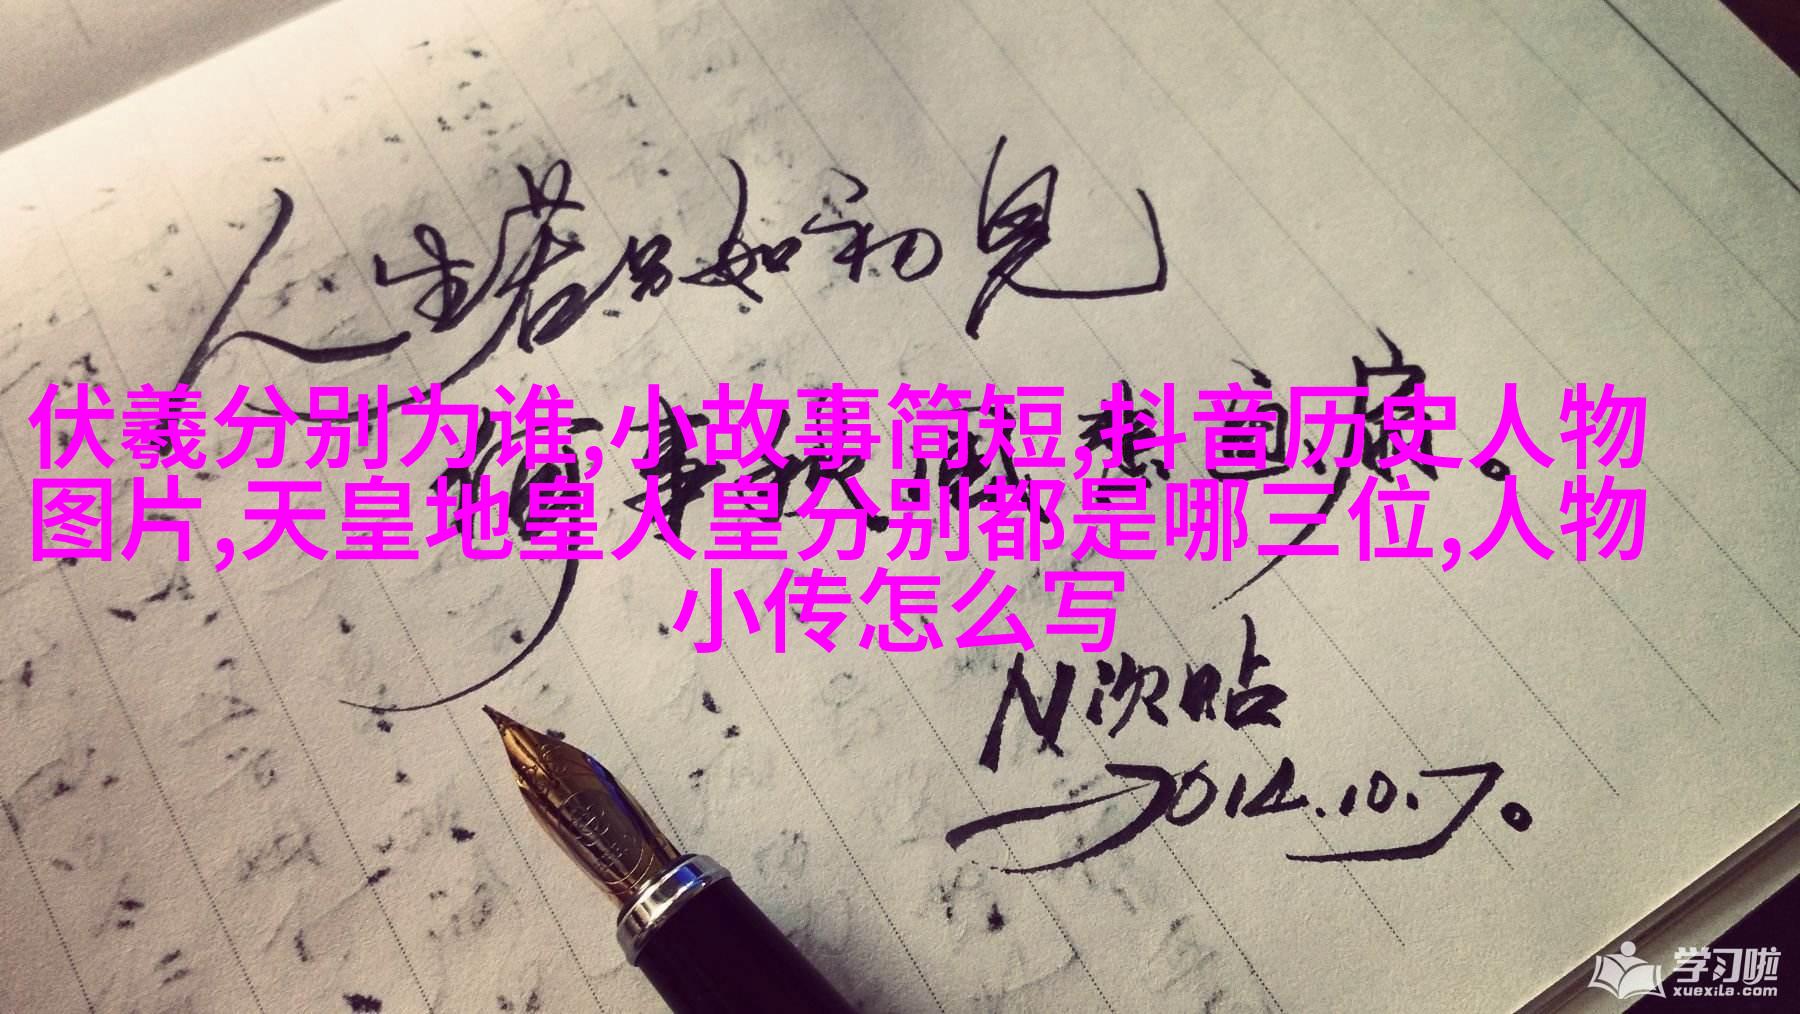 人生若只如初见
伏羲分别为谁,小故事简短,抖音历史人物
图片,天皇地皇人皇分别都是哪三位,人物
小传怎么写
N次贴
2014.10.7。
学习啦
xuexila.com